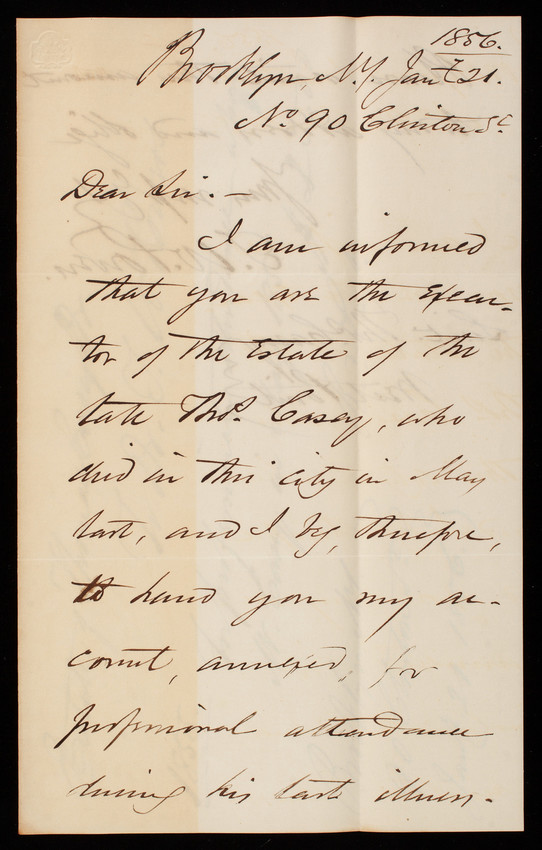 1856.
Brooklyn, N.Y. Jany 21.
No 90 Clinton St.
Dear Sir. —
I am informed
that you are the Execu-
tor of the Estate of the
late Thos. Casey, who
died in this city in May
last, and I beg, therefore,
to hand you my ac-
count, annexed, for
professional attendance
during his last illness.